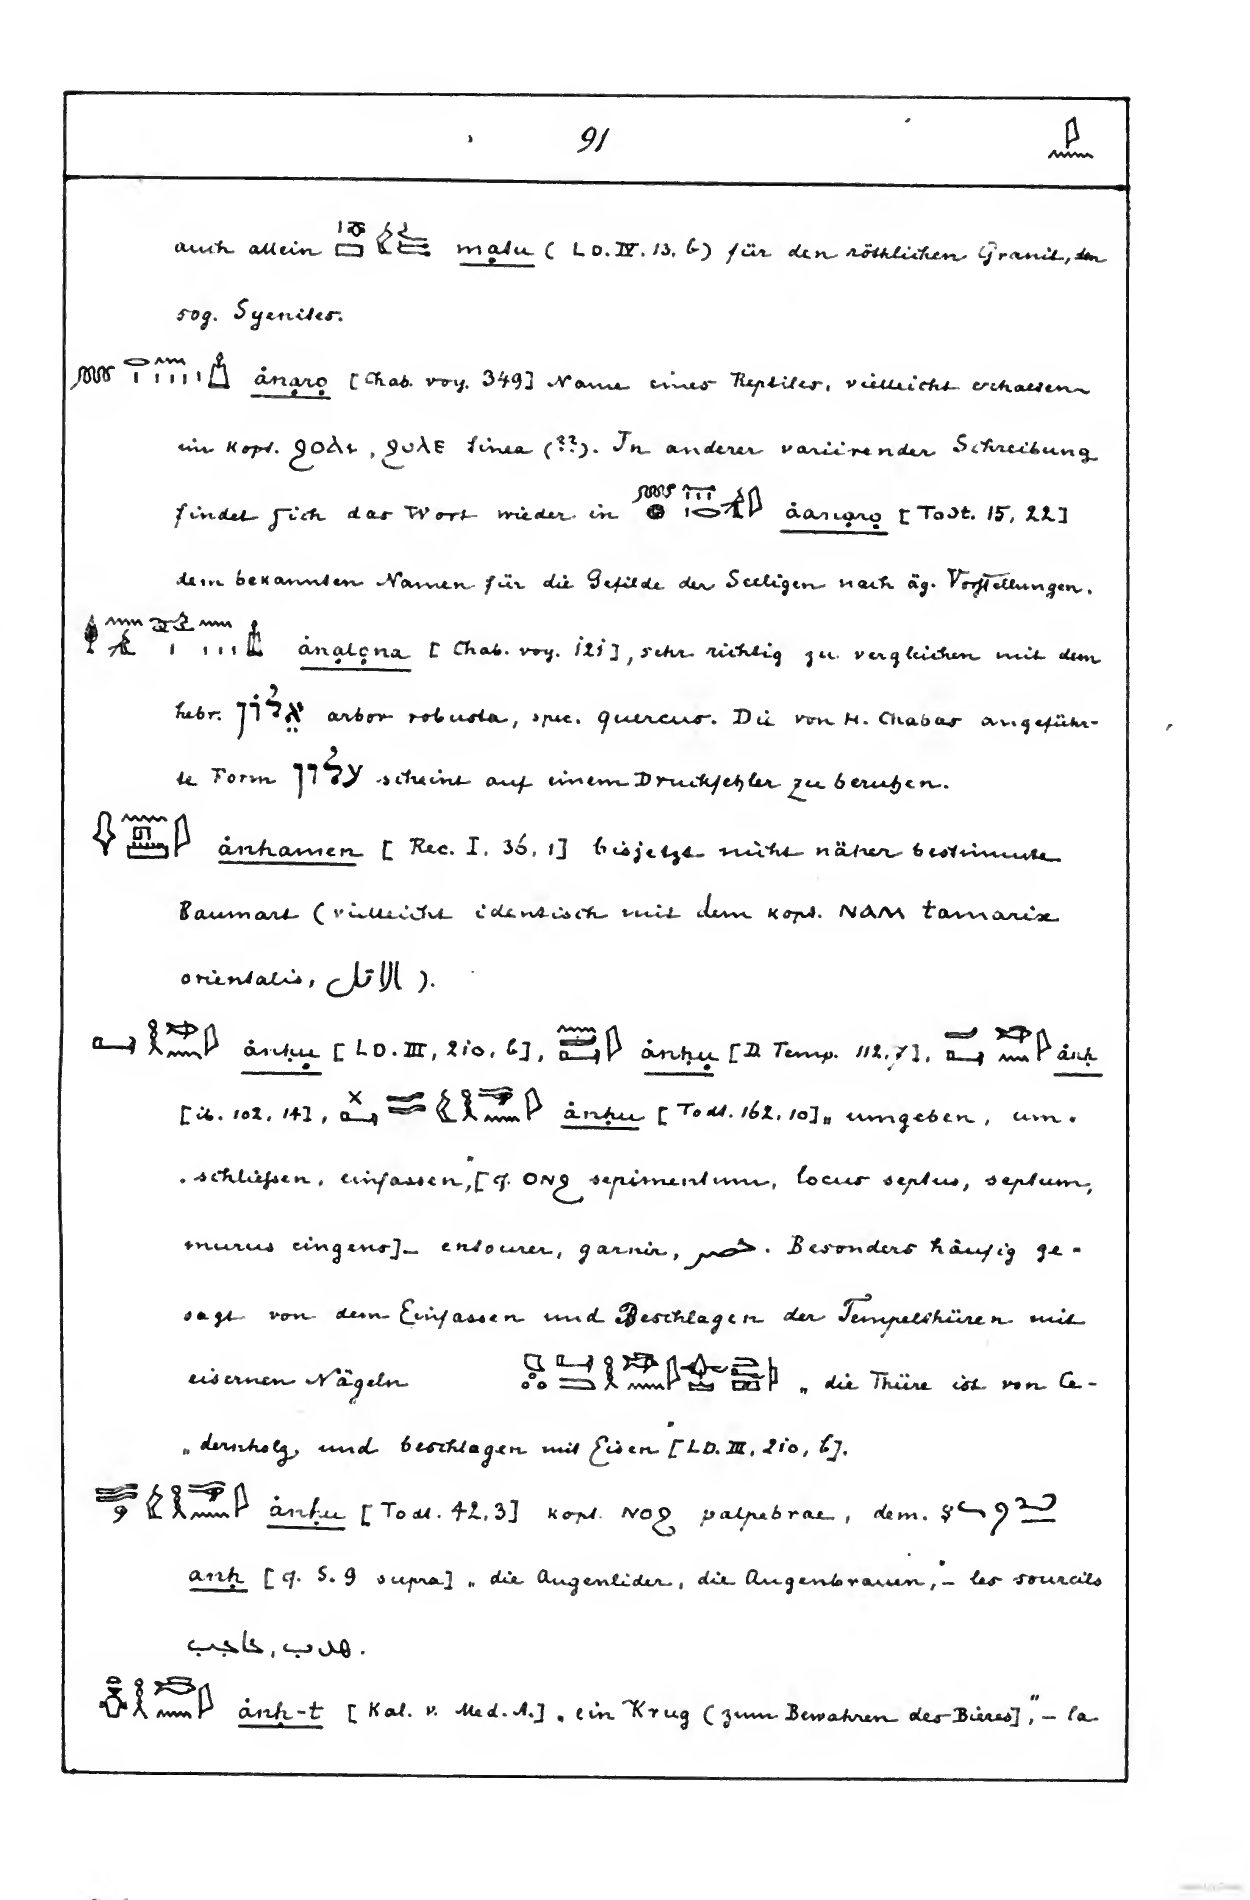 91
auch allein maṭu (LD. IV. 13. b) für den röthlichen Granit, den
sog. Syenites.
ȧnaro [Chab. voy. 349] Name eines Reptiles, vielleicht erhalten
im kopt. ϩολι, ϩολε tinea (??). In anderer variirender Schreibung
findet sich das Wort wieder in ȧanaro [Todt. 15, 22]
dem bekannten Namen für die Gefilde der Seeligen nach äg. Vorstellungen.
ȧnaḷona [Chab. voy. 121], sehr richtig zu vergleichen mit dem
hebr. אֵלוֹן arbor robusta, spec. quercus. Die von H. Chabas angeführ-
te Form עלוֹן scheint auf einem Druckfehler zu beruhen.
ȧnhamen [Rec. I. 36, 1] bisjetzt nicht näher bestimmte
Baumart (vielleicht identisch mit dem kopt. NAM tamarix
orientalis, الاتل).
ȧnḥu [LD. III, 210, b], ȧnḥu [D Temp. 112, 7], ȧnḥ
[ib. 102, 14], ȧnḥu [Todt. 162, 10] „umgeben, um-
schliefsen, einfassen", [cf. ⲟⲛϩ sepimentum, locus septus, septum,
murus cingens] – entourer, garnir, حصر. Besonders häufig ge-
sagt von dem Einfassen und Beschlagen der Tempelthüren mit
eisernen Nägeln „die Thüre ist von Ce-
„dernholz und beschlagen mit Eisen" [LD. III, 210, b].
ȧnḥu [Todt. 42, 3] kopt. ⲛⲟϩ palpebrae, dem.
anḥ [cf. S. 9 supra] „die Augenlider, die Augenbrauen", – les sourcils
هدب, حاجب.
ȧnḥ-t [Kal. v. Med. A.] „ein Krug (zum Bewahren des Bieres]", – la